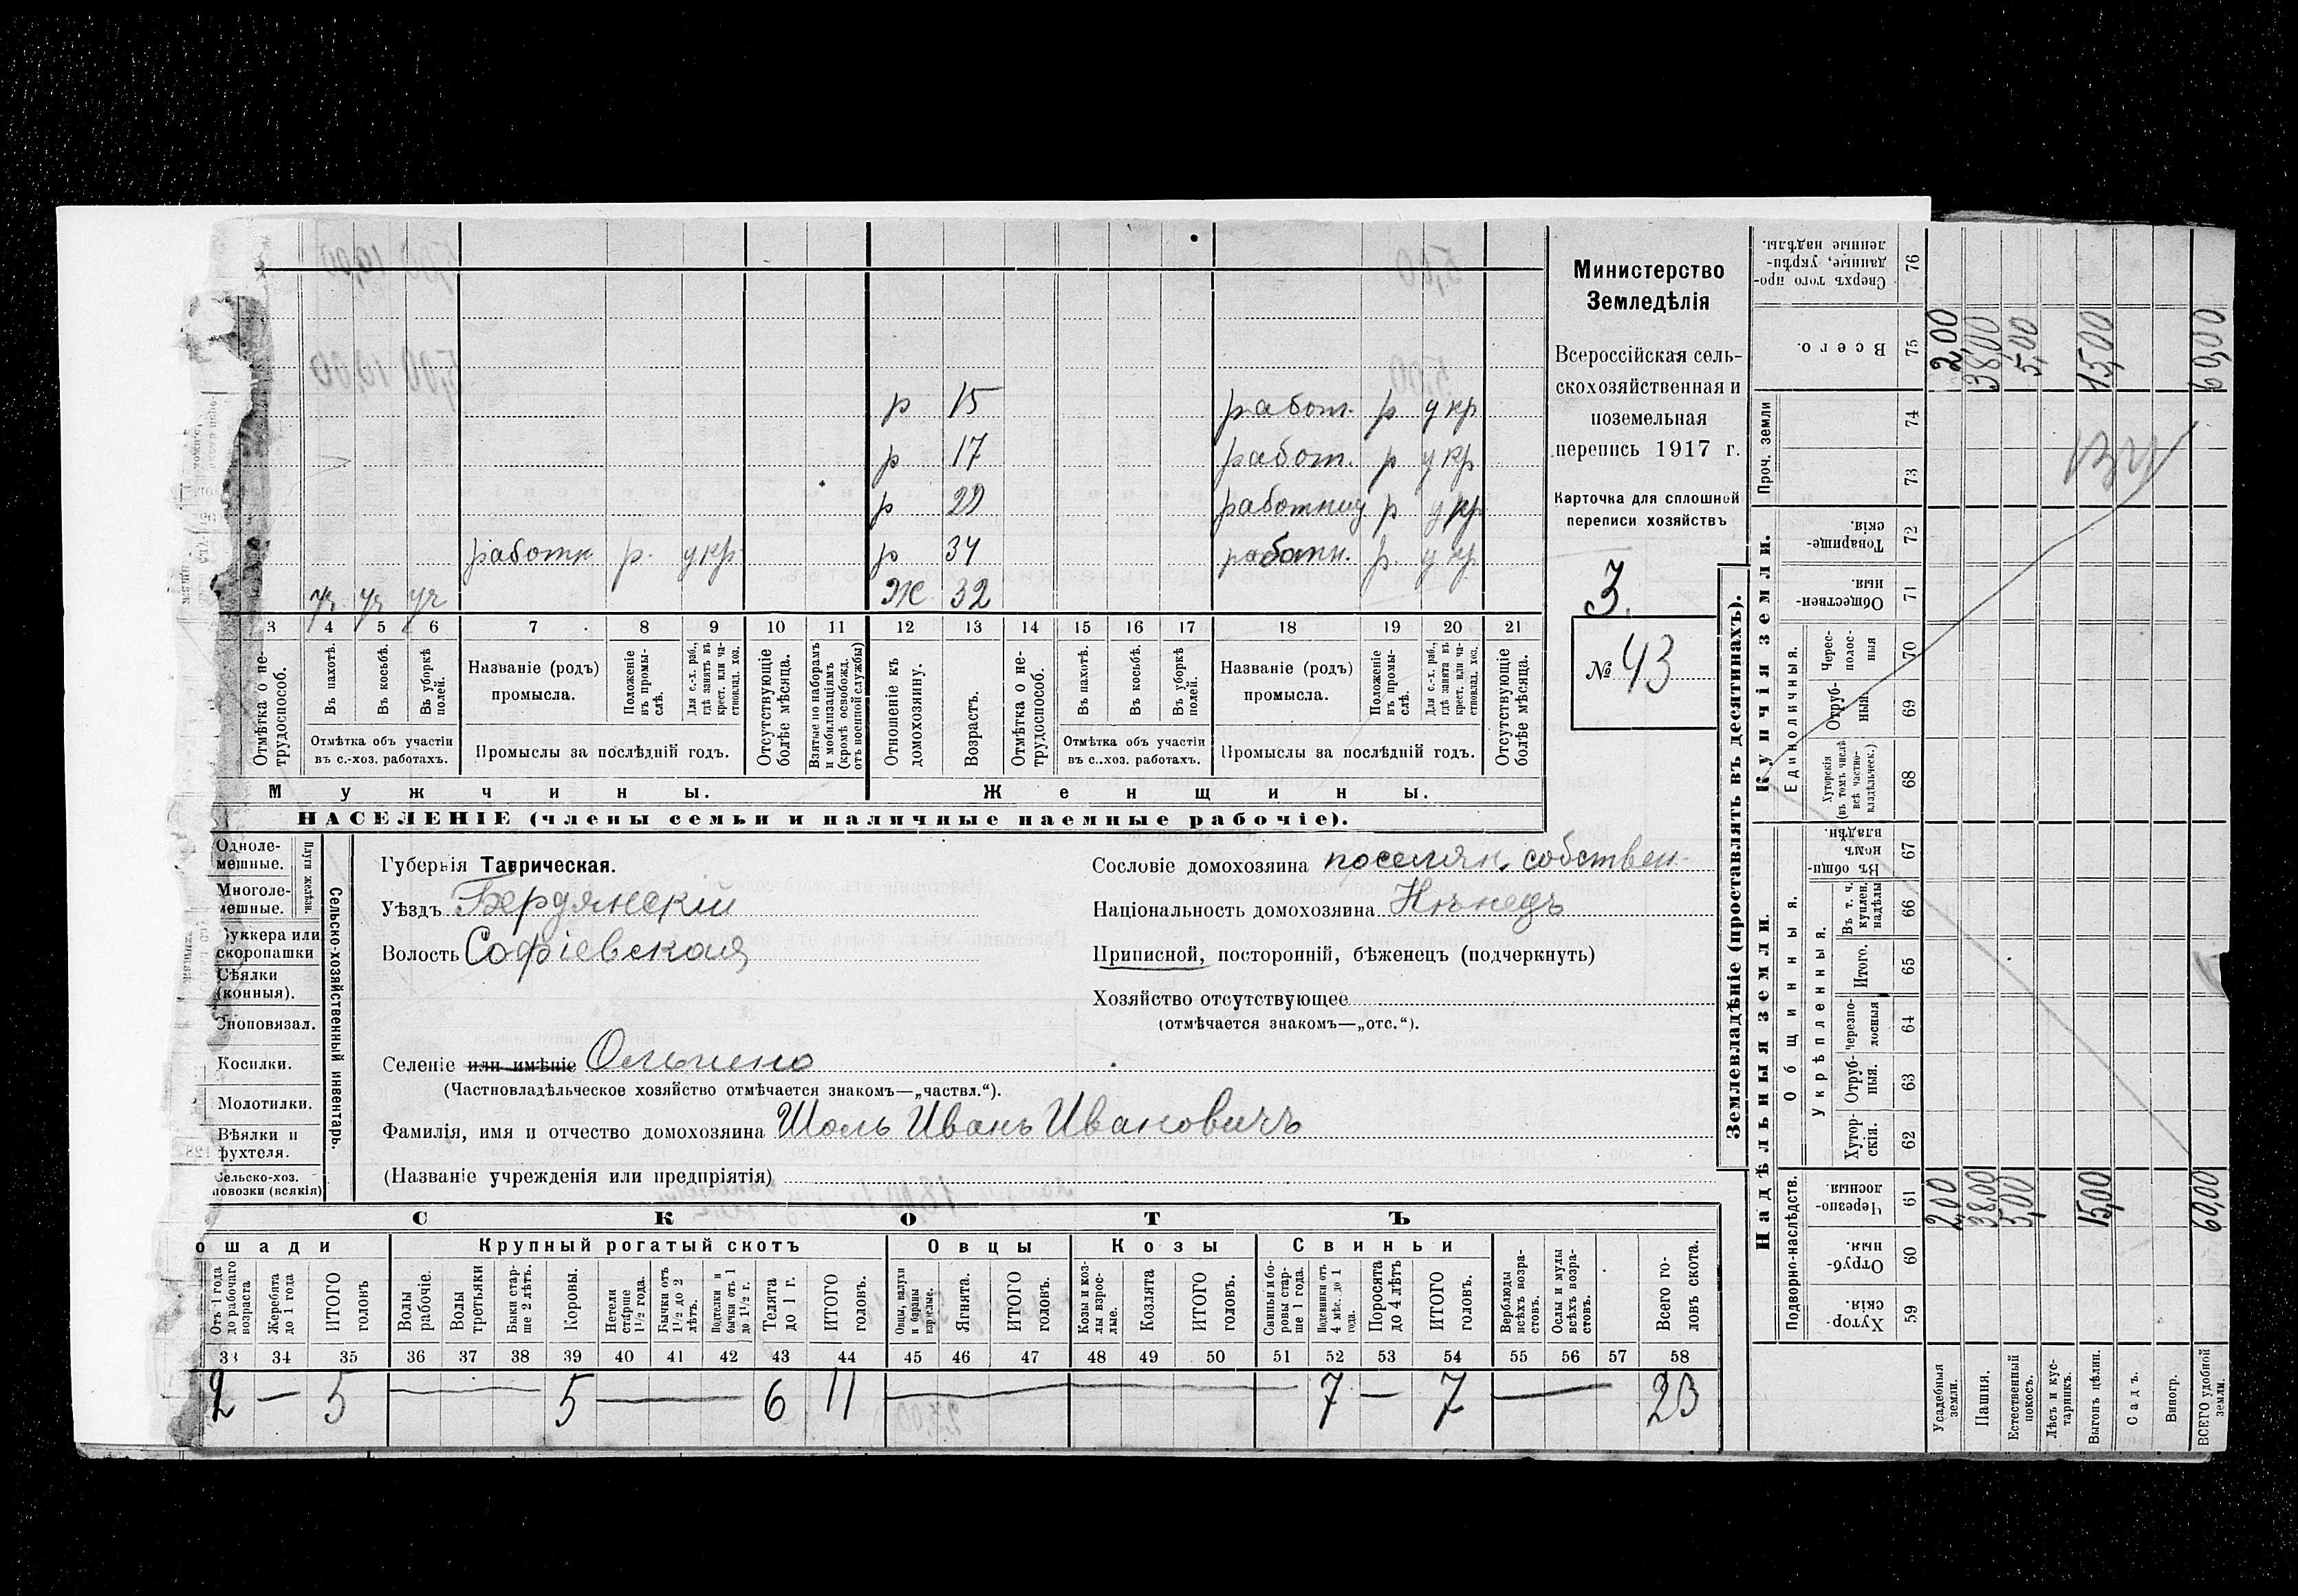 р 15 работ. р укр
р 17 работ. р укр
р 29 работниц р укр
работн р. укр р 34 работн. р. укр
уч уч уч Ж 32
3 4 5 6 7 8 9 10 11 12 13 14 15 16 17 18 19 20 21
Отмѣтка о не-трудоспособ.
Въ пахотѣ.
Въ косьбѣ.
Въ уборкѣ полей.
Отмѣтка объ участіи
въ с.-хоз. работахъ.
Названіе (родъ)
промысла.
Положеніе въ промы-слѣ.
Для с.-х. раб., гдѣ занятъ въ крест. или ча-стновлад. хоз.
Промыслы за послѣдній годъ.
Отсутствующіе болѣе мѣсяца.
Взятые по наборамъ и мобилизаціямъ (кромѣ освобожд. отъ военной службы)
Отношеніе къ домохозяину.
Возрастъ.
Отмѣтка о не-трудоспособ.
Въ пахотѣ.
Въ косьбѣ.
Въ уборкѣ полей.
Отмѣтка объ участіи
въ с.-хоз. работахъ.
Названіе (родъ)
промысла.
Положеніе въ промы-слѣ.
Для с.-х. раб., гдѣ занята въ крест. или ча-стновлад. хоз.
Промыслы за послѣдній годъ.
Отсутствующіе болѣе мѣсяца.
Мужчины. Женщины.
НАСЕЛЕНІЕ (члены семьи и наличные наемные рабочіе).
Министерство
Земледѣлія
Всероссійская сель-
скохозяйственная и
поземельная
перепись 1917 г.
Карточка для сплошной
переписи хозяйствъ
3.
№ 43
Одноле-
мешные.
Многоле-
мешные.
Плуги желѣзн.
Буккера или
скоропашки
Сѣялки
(конныя).
Сноповязал.
Косилки.
Молотилки.
Вѣялки и
фухтеля.
Сельско-хоз.
повозки (всякія)
Сельско-хозяйственный инвентарь.
Губернія Таврическая.
Уѣздъ Бердянскій
Волость Софіевская
Селеніе или имѣніе Ольгино
(Частновладѣльческое хозяйство отмѣчается знакомъ—„частвл.“).
Фамилія, имя и отчество домохозяина Шоль Иванъ Ивановичъ
(Названіе учрежденія или предпріятія)
Сословіе домохозяина поселян. собствен.
Національность домохозяина Нѣмецъ
Приписной, посторонній, бѣженецъ (подчеркнуть)
Хозяйство отсутствующее
(отмѣчается знакомъ—„отс.“).
СКОТЪ
ошади Крупный рогатый скотъ Овцы Козы Свиньи
Отъ 1 года до рабочаго возраста
Жеребята до 1 года
ИТОГО головъ
Волы рабочіе.
Волы третьяки
Быки стар-ше 2 лѣтъ.
Коровы.
Нетели старше 1 1/2 года.
Бычки отъ 1 1/2 до 2 лѣтъ.
Подтелки и бычки отъ 1 до 1 1/2 г.
Телята до 1 г.
ИТОГО головъ.
Овцы, валухи и бараны взрослые.
Ягнята.
ИТОГО головъ.
Козы и коз-лы взрос-лые.
Козлята
ИТОГО головъ.
Свиньи и бо-ровы стар-ше 1 года.
Подсвинки отъ 4 мѣс. до 1 года.
Поросята до 4 лѣтъ
ИТОГО головъ.
Верблюды всѣхъ возра-стовъ.
Ослы и мулы всѣхъ возра-стовъ.
Всего го-ловъ скота.
33 34 35 36 37 38 39 40 41 42 43 44 45 46 47 48 49 50 51 52 53 54 55 56 57 58
2 — 5 — 5 — 6 11 — 7 — 7 — 23
Землевладѣніе (проставлять въ десятинахъ).
Надѣльныя земли. Купчія земли.
Подворно-наслѣдств.
Общинныя.
Укрѣпленныя.
Единоличныя.
Проч. земли
Сверхъ того про-данные, укрѣп-ленные надѣлы. 76
Всего. 75
74
73
Товарище-скія. 72
Обществен-ныя. 71
Черес-полос-ныя 70
Отруб-ныя 69
Хуторскія (въ томъ числѣ всѣ частно-владѣльческ.) 68
Въ общин-номъ владѣн. 67
Въ т. ч. куплен. надѣлы 66
Итого. 65
Черезпо-лосныя 64
Отруб-ныя. 63
Хутор-скія. 62
Черезпо-лосныя 61
Отруб-ныя. 60
Хутор-скія. 59
2,00 38,00 5,00 15,00 60,00
2,00 38,00 5,00 15,00 60,00
Усадебныя земли.
Пашня.
Естественный покосъ.
Лѣсъ и кус-тарникъ.
Выгонъ цѣлин.
Садъ.
Виногр.
ВСЕГО удобной земли.